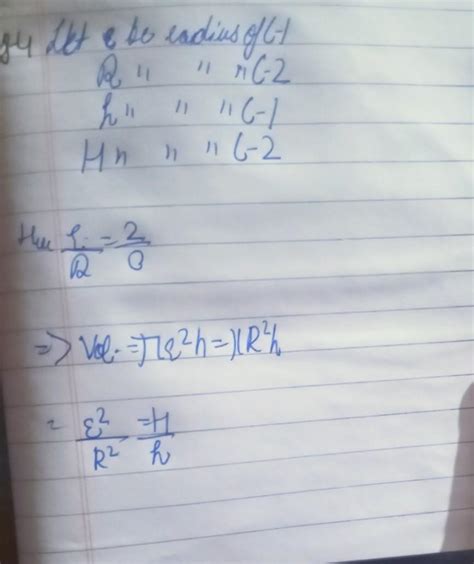 Let r be radius of C-1
R " " " C-2
h " " " C-1
H " " " C-2
r/R = 2/3
=> Vol. = πr²h = πR²h
= r²/R² = H/h